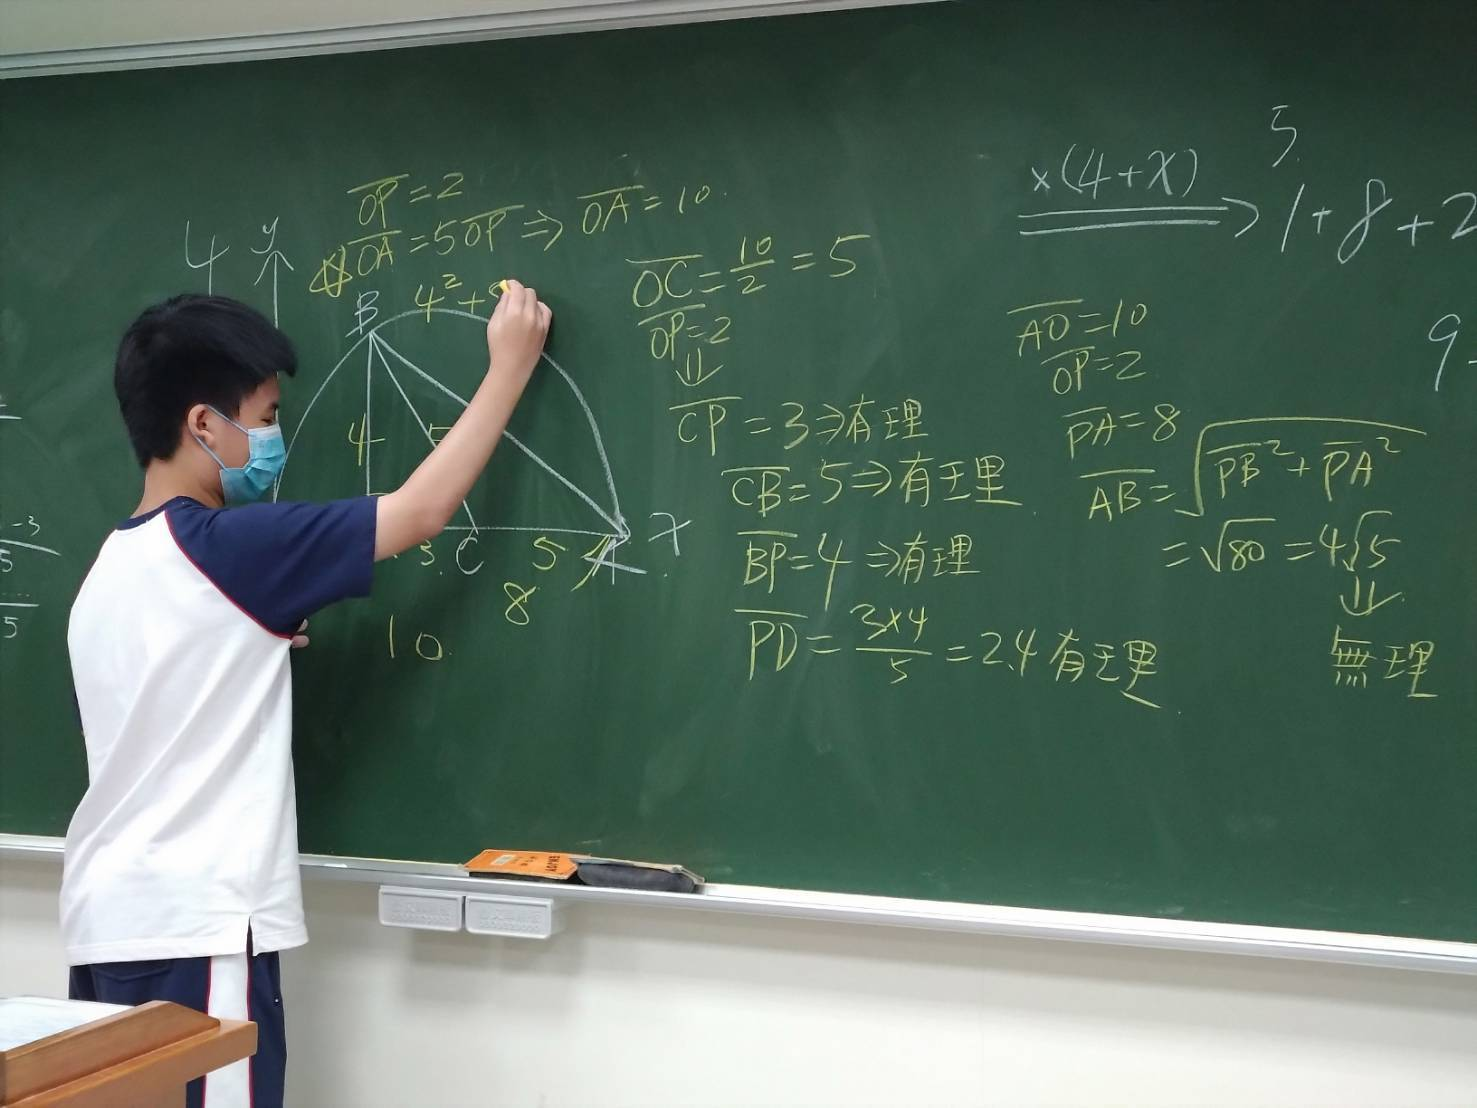 OP=2
OA=5OP⇒OA=10
4²+8
4
y
B
4
5
3
C
5
A
x
8
10
OC=10/2=5
OP=2
⇓
CP=3⇒有理
CB=5⇒有理
BP=4⇒有理
PD=3×4/5=2.4有理
×(4+x)
5.
1+8+2
9
AO=10
OP=2
PA=8
AB=√PB²+PA²
=√80=4√5
⇓
無理
-3
5
5